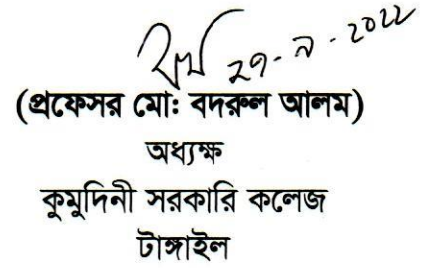 ২৭-৯-২০২২
(প্রফেসর মো: বদরুল আলম)
অধ্যক্ষ
কুমুদিনী সরকারি কলেজ
টাঙ্গাইল